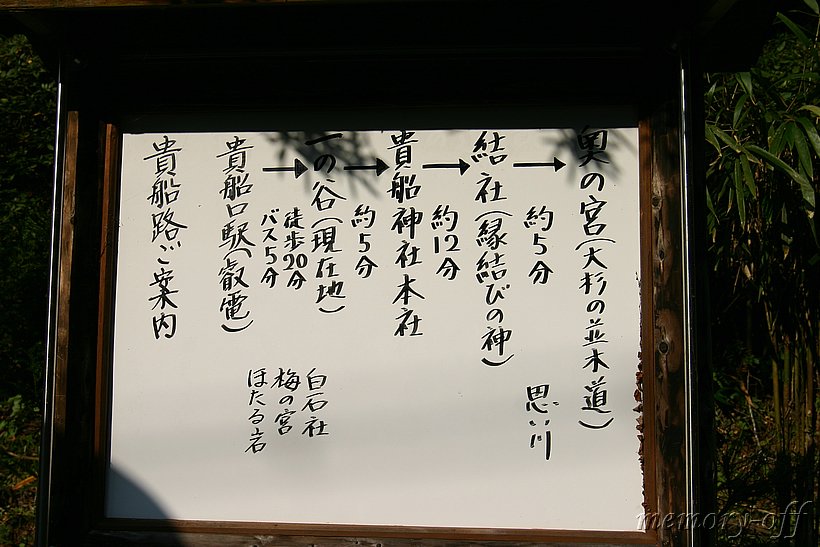 貴船路ご案内
貴船口駅(叡電)
→
徒歩20分
バス5分
一の谷(現在地)
→
約5分
貴船神社本社
→
約12分
結社(縁結びの神)
→
約5分
奥の宮(大杉の並木道)
白石社
梅の宮
ほたる岩
思い川
memory-off